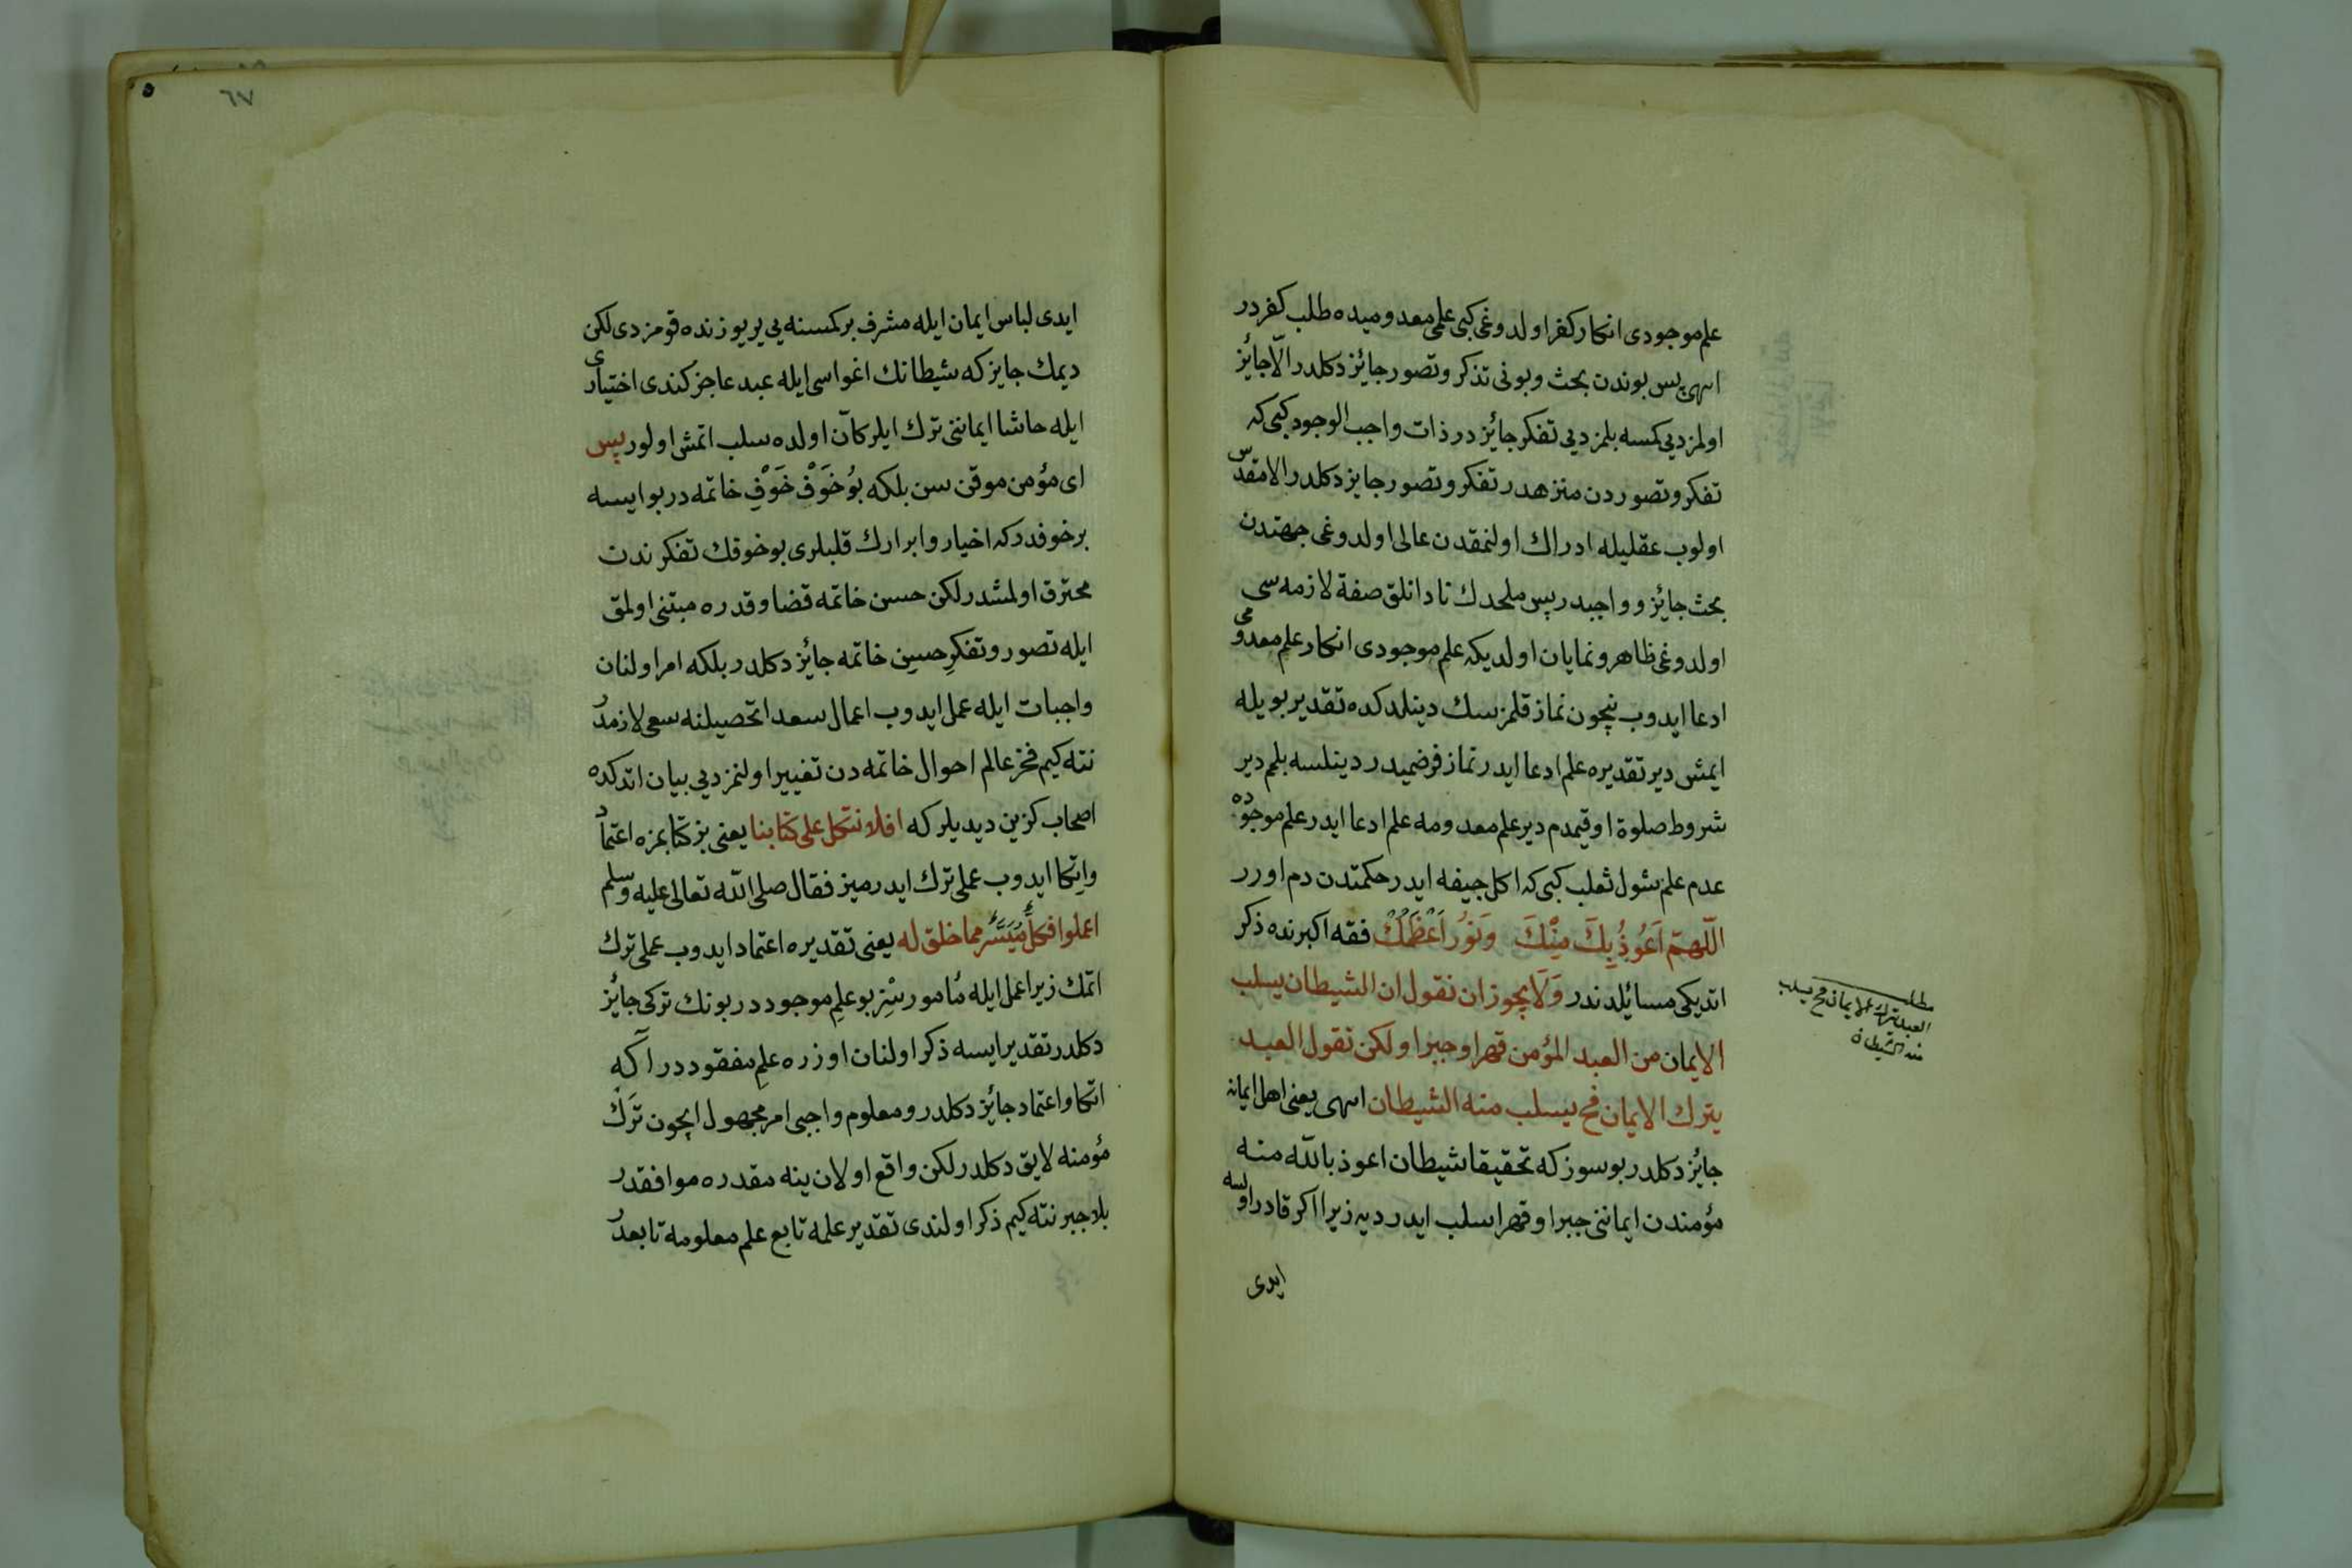 علم موجودی انکار کفر اولدوغی کبی علمی معدومیده طلب کفردر
انتهی پس بوندن بحث وبونی تذکر وتصور جائز دکلدر الّا جائز
اولمز دیی کمسه بلمز دیی تفکر جائزدر ذات واجب الوجود کبی که
تفکر وتصوردن منزهدر تفکر وتصور جایز دکلدر الا مقدس
اولوب عقلیله ادراك اولنمقدن عالی اولدوغی جهتدن
بحث جائز وواجبدر پس ملحدك نادانلق صفة لازمه سی
اولدوغی ظاهر ونمایان اولدیکه علم موجودی انکار علم معدومی
ادعا ایدوب نیچون نماز قلمزسك دینلدکده تقدیر بویله
ایمش دیر تقدیره علم ادعا ایدر نماز فرضمیدر دینلسه بلمم دیر
شروط صلوة اوقیمدم دیر علم معدومه علم ادعا ایدر علم موجوده
عدم علم شول ثعلب کبی که اکل جیفه ایدر حکمتدن دم اورر
اللّهمّ اَعُوذُ بِكَ مِنْكَ وَنَوُر اَعْظَمُكْ فقه اکبرنده ذکر
اتدیکی مسائلدندر وَلَا یجوز ان نقول ان الشیطان یسلب
الایمان من العبد المؤمن قهرا وجبرا ولکن نقول العبد
یترك الایمان فح یسلب منه الشیطان انتهی یعنی اهل ایمانه
جائز دکلدر بو سوز که تحقیقا شیطان اعوذ بالله منه
مؤمندن ایماننی جبرا وقهرا سلب ایدر دیه زیرا اکر قادر اولسه
ایدی
مطلب
العبد یترك الایمان فح یسلب
منه الشیطان
٦٧
ایدی لباس ایمان ایله مشرف بر کمسنه یی یر یوزنده قومزدی لکن
دیمك جایز که شیطانك اغواسی ایله عبد عاجز کندی اختیاری
ایله حاشا ایماننی ترك ایلر کان اولده سلب اتمش اولور پس
ای مؤمن موقن سن بلکه بوُ خَوْفْ خَوْفِ خاتمه در بو ایسه
بر خوفدر که اخیار وابرارك قلبلری بو خوفك تفکرندن
محترق اولمشدر لکن حسن خاتمه قضا وقدره مبتنی اولمق
ایله تصور وتفکرِ حسنِ خاتمه جائز دکلدر بلکه امر اولنان
واجبات ایله عمل ایدوب اعمال سعدا تحصیلنه سعی لازمدر
نته کیم فخر عالم احوال خاتمه دن تغییر اولنمز دیی بیان اتدکده
اصحاب کزین دیدیلر که افلا نتکل علی کتابنا یعنی بز کتابمزه اعتماد
واتکا ایدوب عملی ترك ایدرمیز فقال صلی اللّه تعالی علیه وسلم
اعملوا فکلٌّ مُیَسَّرٌ مما خلق له یعنی تقدیره اعتماد ایدوب عملی ترك
اتمك زیرا عمل ایله مُامورسِز بو علمِ موجوددر بونك ترکی جائز
دکلدر تقدیر ایسه ذکر اولنان اوزره علمِ مفقوددر اکه
اتکا واعتماد جائز دکلدر ومعلوم واجبی امر مجهول ایچون ترَك
مؤمنه لایق دکلدر لکن واقع اولان ینه مقدره موافقدر
بلا جبر نته کیم ذکر اولندی تقدیر علمه تابع علم معلومه تابعدر